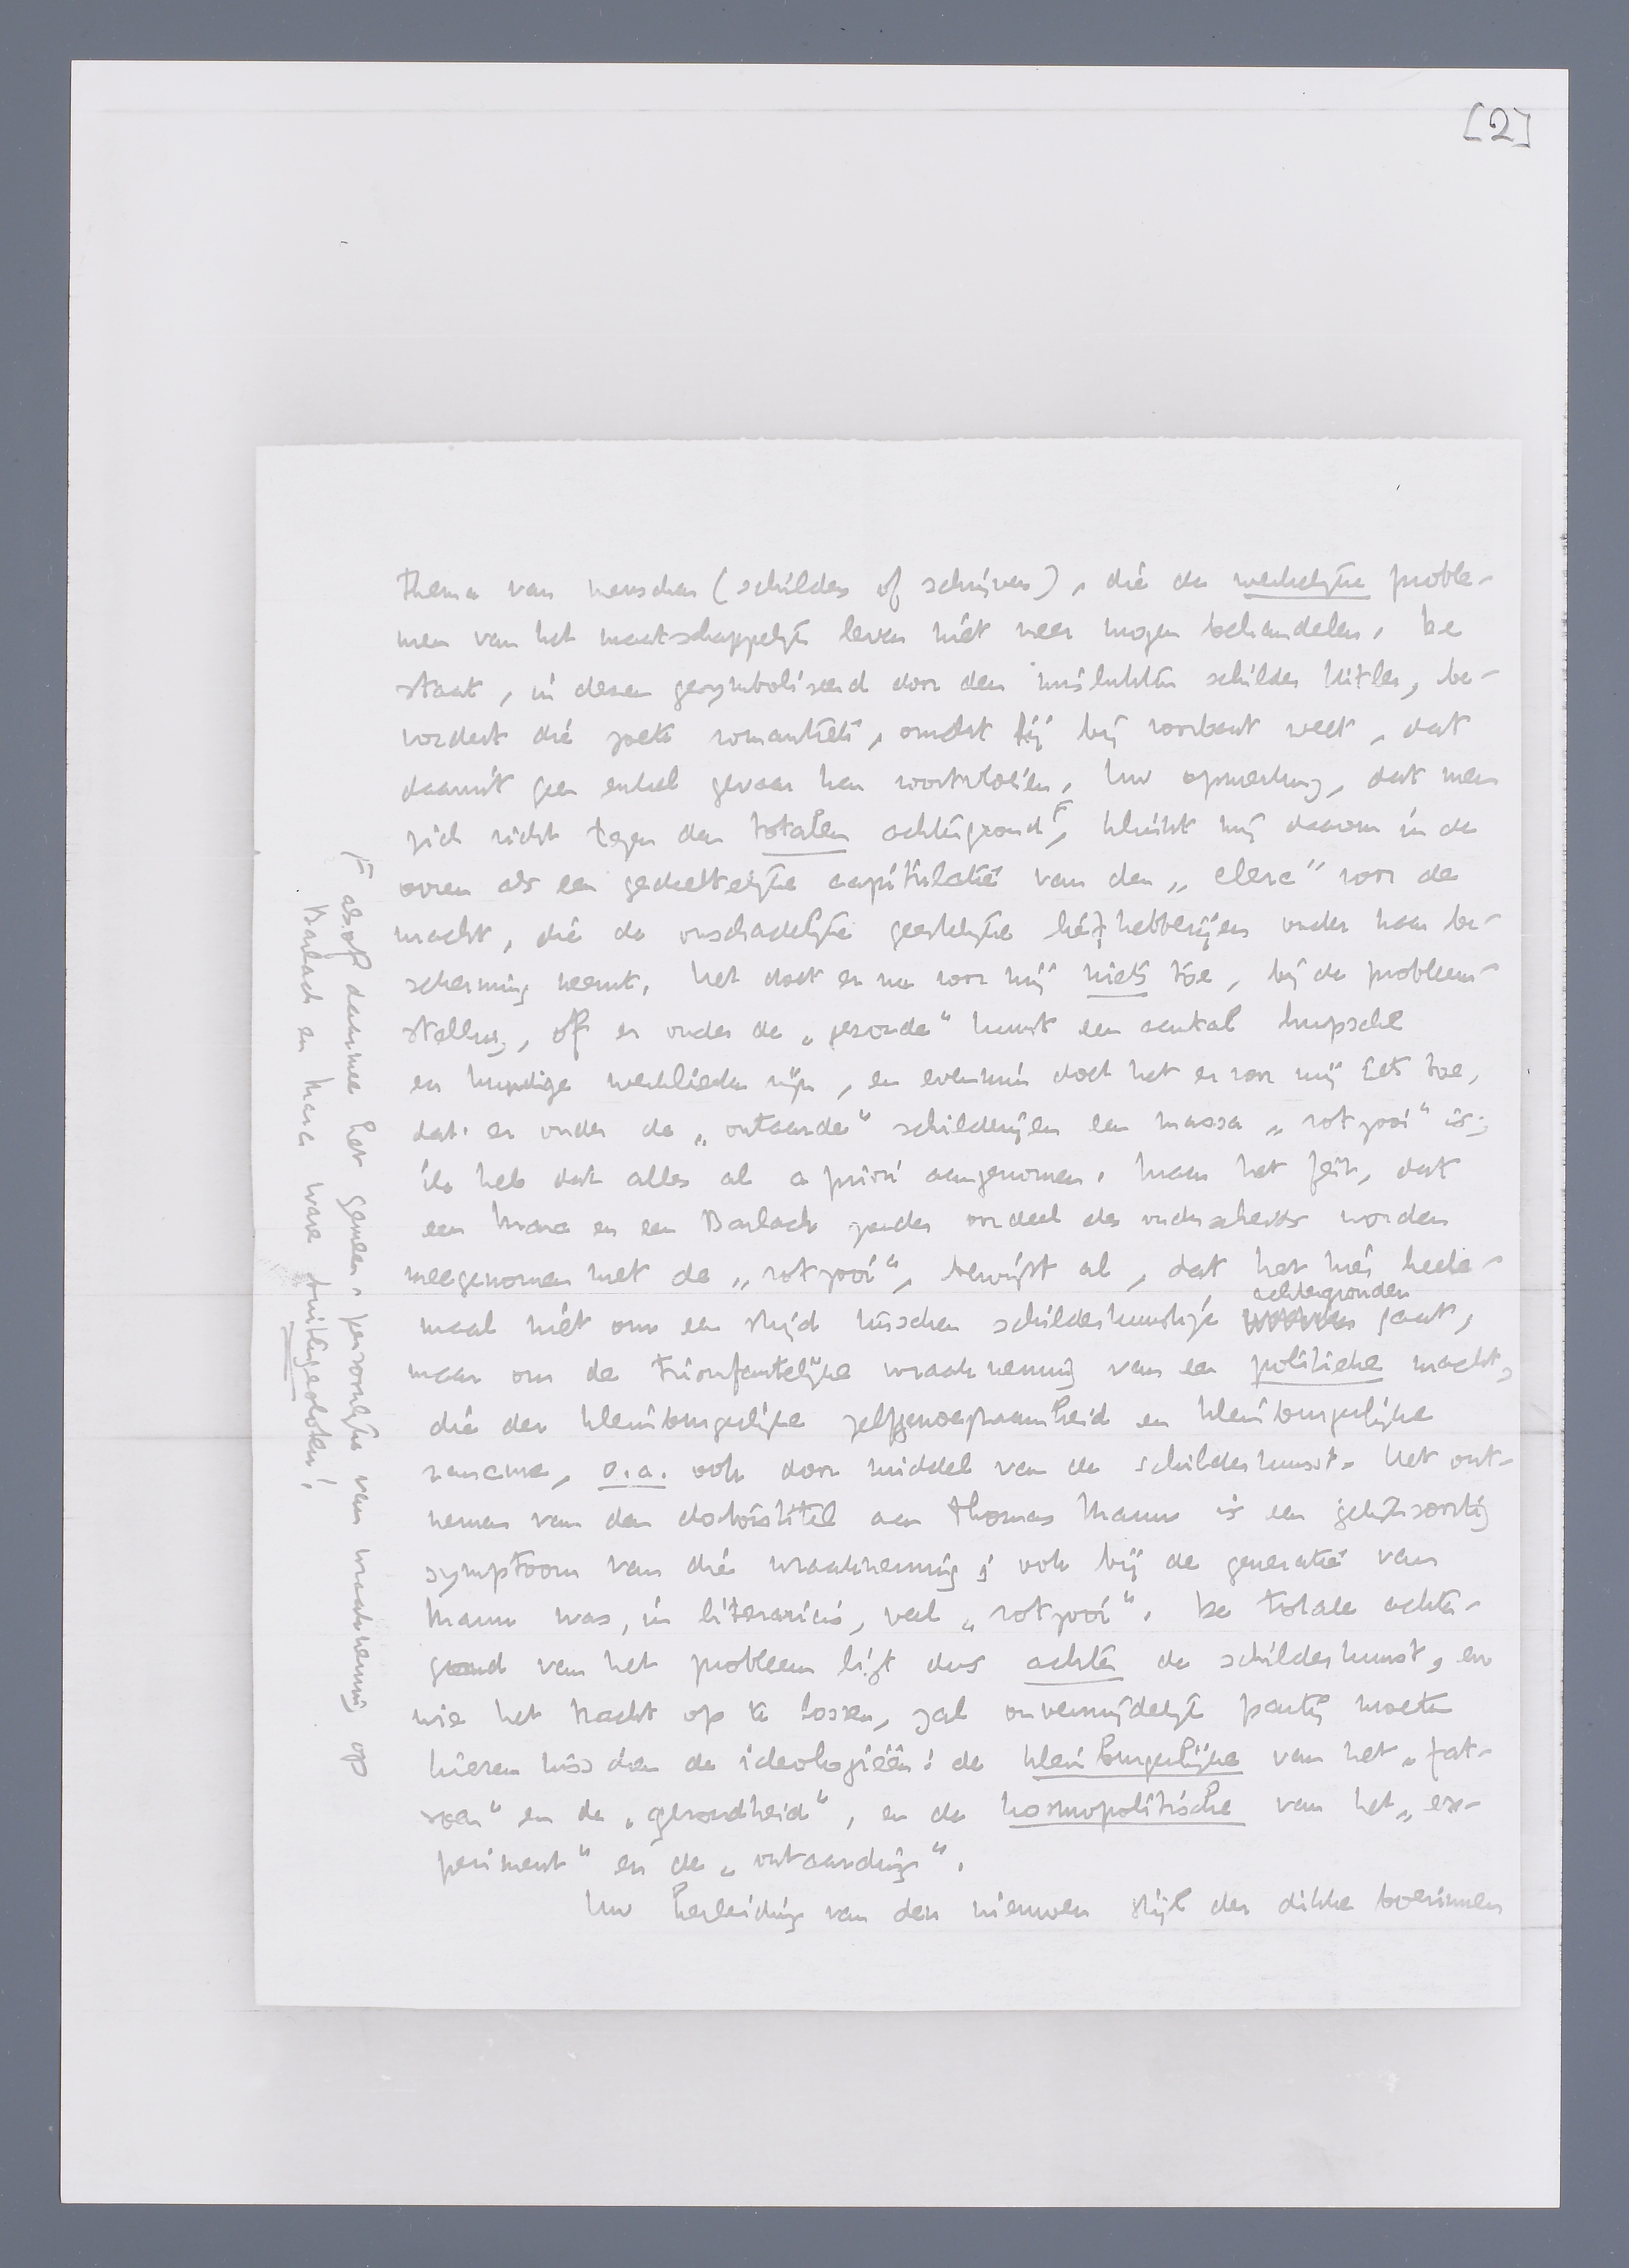 [2]
thema van menschen (schilders of schrijvers), die de werkelijke proble-
men van het maatschappelijk leven niet meer mogen behandelen. De
staat, in dezen gesymboliseerd door den mislukten schilder Hitler, be-
vordert die zoete romantiek, omdat hij bij voorbaat weet, dat
daaruit geen enkel gevaar kan voortvloeien. Uw opmerking, dat men
zich richt tegen den totalen achtergrond F, klinkt mij daarom in de
ooren als een gedeeltelijke capitulatie van den „clerc” voor de
macht, die de onschadelijke geestelijke liefhebberijen onder haar be-
scherming neemt. Het doet er nu voor mij niets toe, bij de probleem-
stelling, of er onder de „gezonde” kunst een aantal hupsche
en kundige werklieden zijn, en evenmin doet het er voor mij iets toe,
dat er onder de „ontaarde” schilderijen een massa „rotzooi” is;
ik heb dat alles al a priori aangenomen. Maar het feit, dat
een Marc en een Barlach zonder oordeel des onderscheids worden
meegenomen met de „rotzooi”, bewijst al, dat het hier heele-
maal niet om een strijd tusschen schilderkunstige achtergronden gaat,
maar om de triomfantelijke wraakneming van een politieke macht,
die der kleinburgerlijke zelfgenoegzaamheid en kleinburgerlijke
rancune, o.a. ook door middel van de schilderkunst. Het ont-
nemen van den doctorstitel aan Thomas Mann is een gelijksoortig
symptoom van die wraakneming; ook bij de generatie van
Mann was, in literariis, veel „rotzooi”. De totale achter-
grond van het probleem ligt dus achter de schilderkunst, en
wie het tracht op te lossen, zal onvermijdelijk partij moeten
kiezen tusschen de ideologieën: de kleinburgerlijke van het „fat-
soen” en de „gezondheid”, en de kosmopolitische van het „ex-
periment” en de „ontaarding”.
Uw herleiding van den nieuwen stijl der dikke boerinnen
F alsof daarmee het gemeen-persoonlijke van wraakneming op
Barlach en Marc ware buitengesloten!